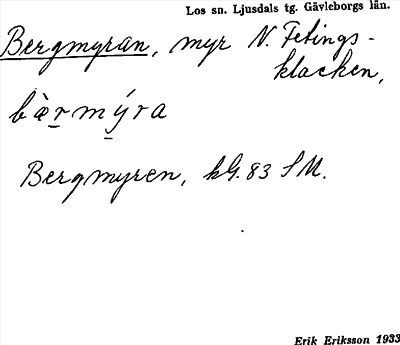 Los sn. Ljusdals tg. Gävleborgs län.
Bergmyran, myr N. Fetings-
klacken,
bæ̀r̲mý̲ra
Bergmyren, kG. 83 SM.
Erik Eriksson 1933